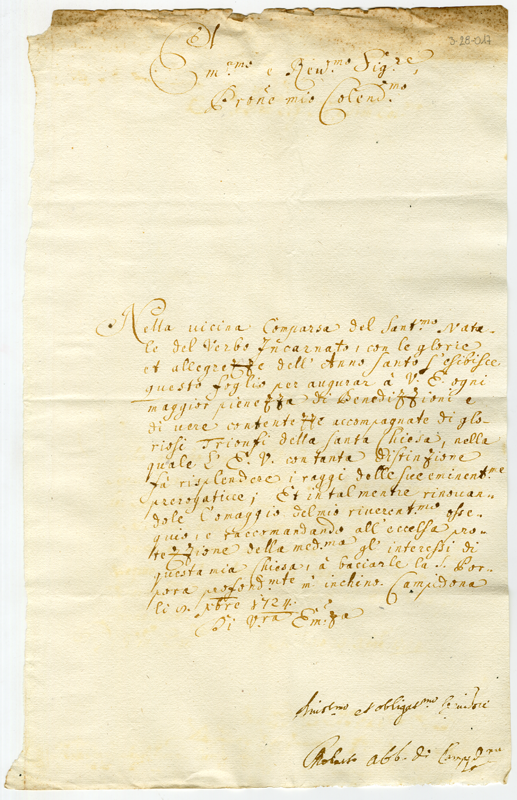 3-28-017
Em.mo e Reu.mo Sig.re,
Prone mio Colend.mo
Nella uicina Comparsa del Sant.mo Nata-
le del Verbo Incarnato, con le glorie
et allegrezze dell'Anno Santo s'esibisce
questo foglio per augurar à V. E. ogni
maggior pienezza di Benedizzioni e
di uere contentezze accompagnate di glo-
riosi Trionfi della Santa Chiesa, nella
quale L'E. V. con tanta distinzione
fà risplendere i raggi delle sue eminent.me
prerogatiue; Et in tal mentre rinouan-
dole l'omaggio del mio riuerent.mo osse-
quio, e raccomandando all'eccelsa pro-
tezzione della med.ma gl'interessi di
questa mia Chiesa, à baciarle la S. Por-
pora profond.mte m'inchino. Campidona
li Xbre 1724.
Di V.ra Em.za
et obligat.mo
Abb. di